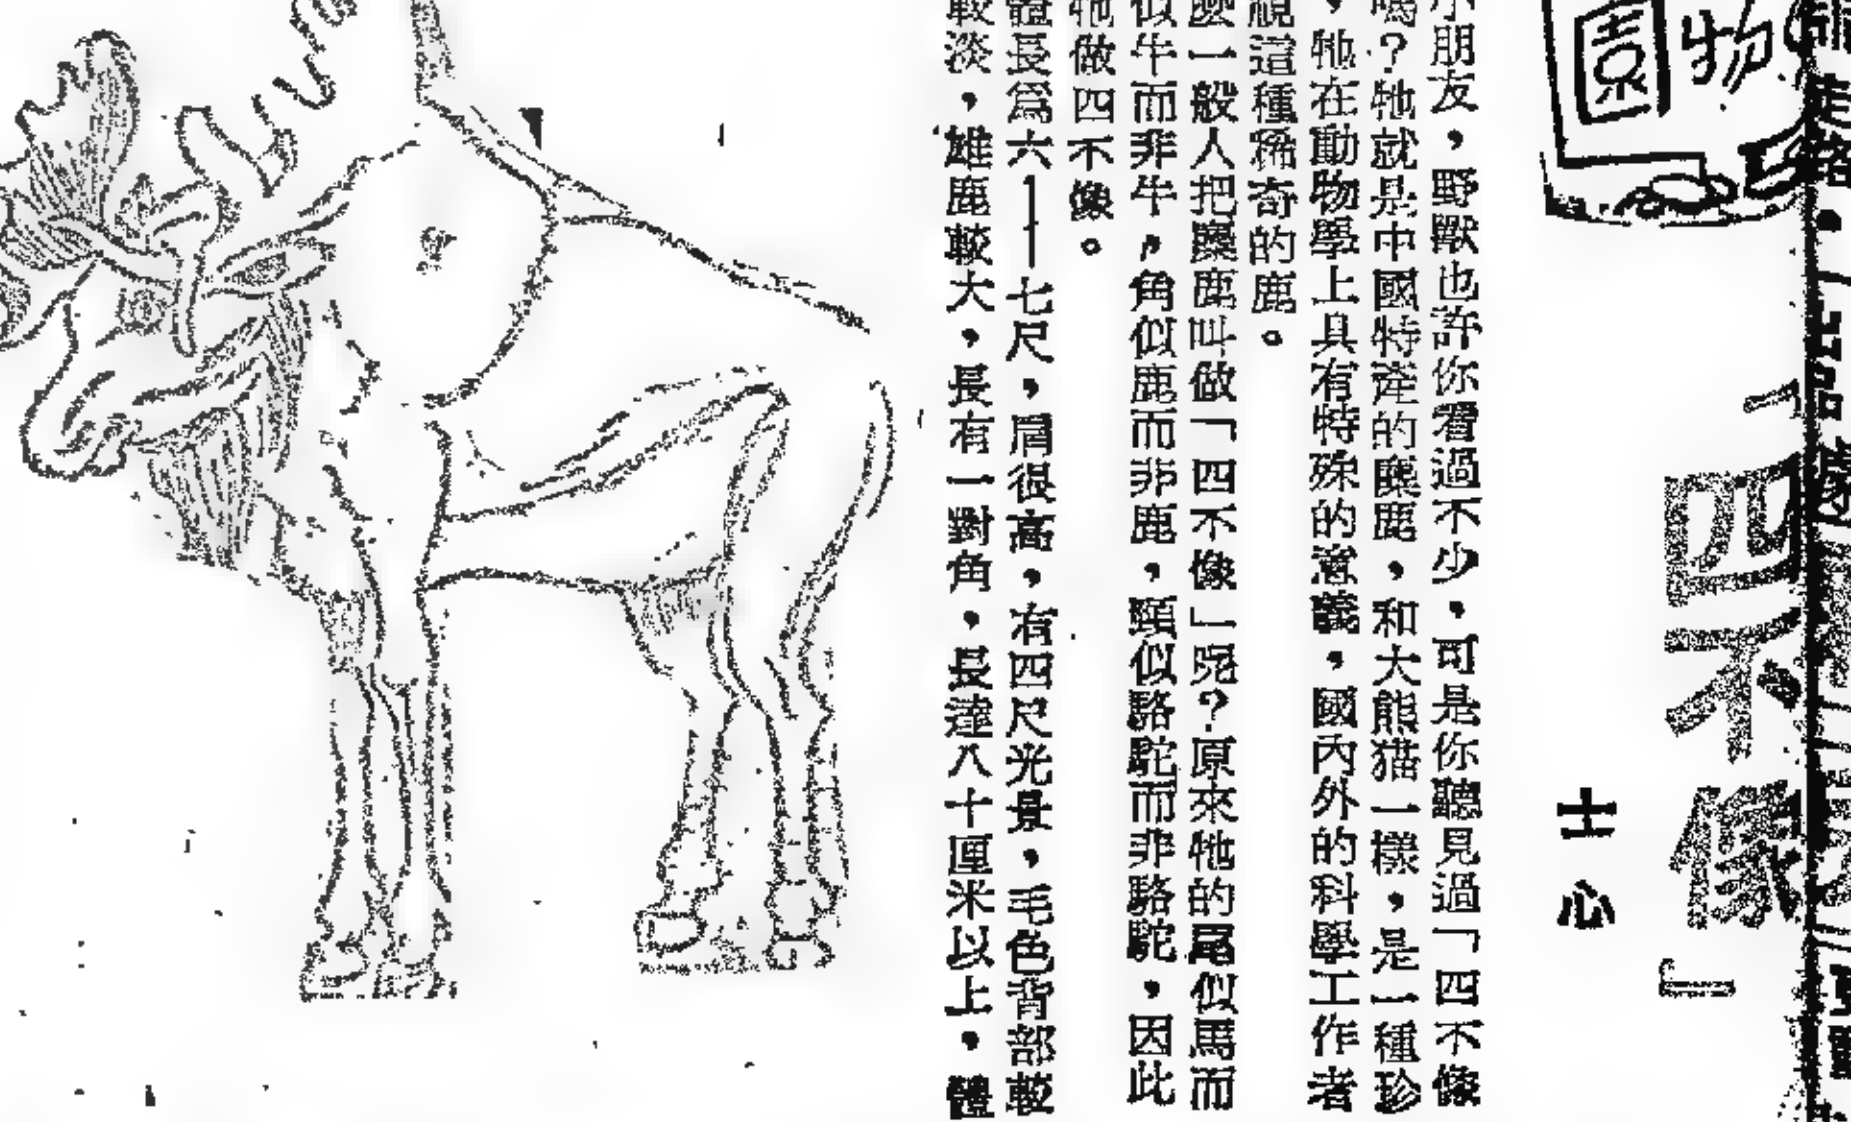 物園
「四不像」
士心
小朋友，野獸也許你看過不少，可是你聽見過「四不像
嗎？牠就是中國特產的麋鹿，和大熊猫一樣，是一種珍
，牠在動物學上具有特殊的意義，國內外的科學工作者
視這種稀奇的鹿。
麼一般人把麋鹿叫做「四不像」呢？原來牠的尾似馬而
似牛而非牛，角似鹿而非鹿，頸似駱駝而非駱駝，因此
牠做四不像。
體長爲六——七尺，肩很高，有四尺光景，毛色背部較
較淡，雄鹿較大，長有一對角，長達八十厘米以上，體